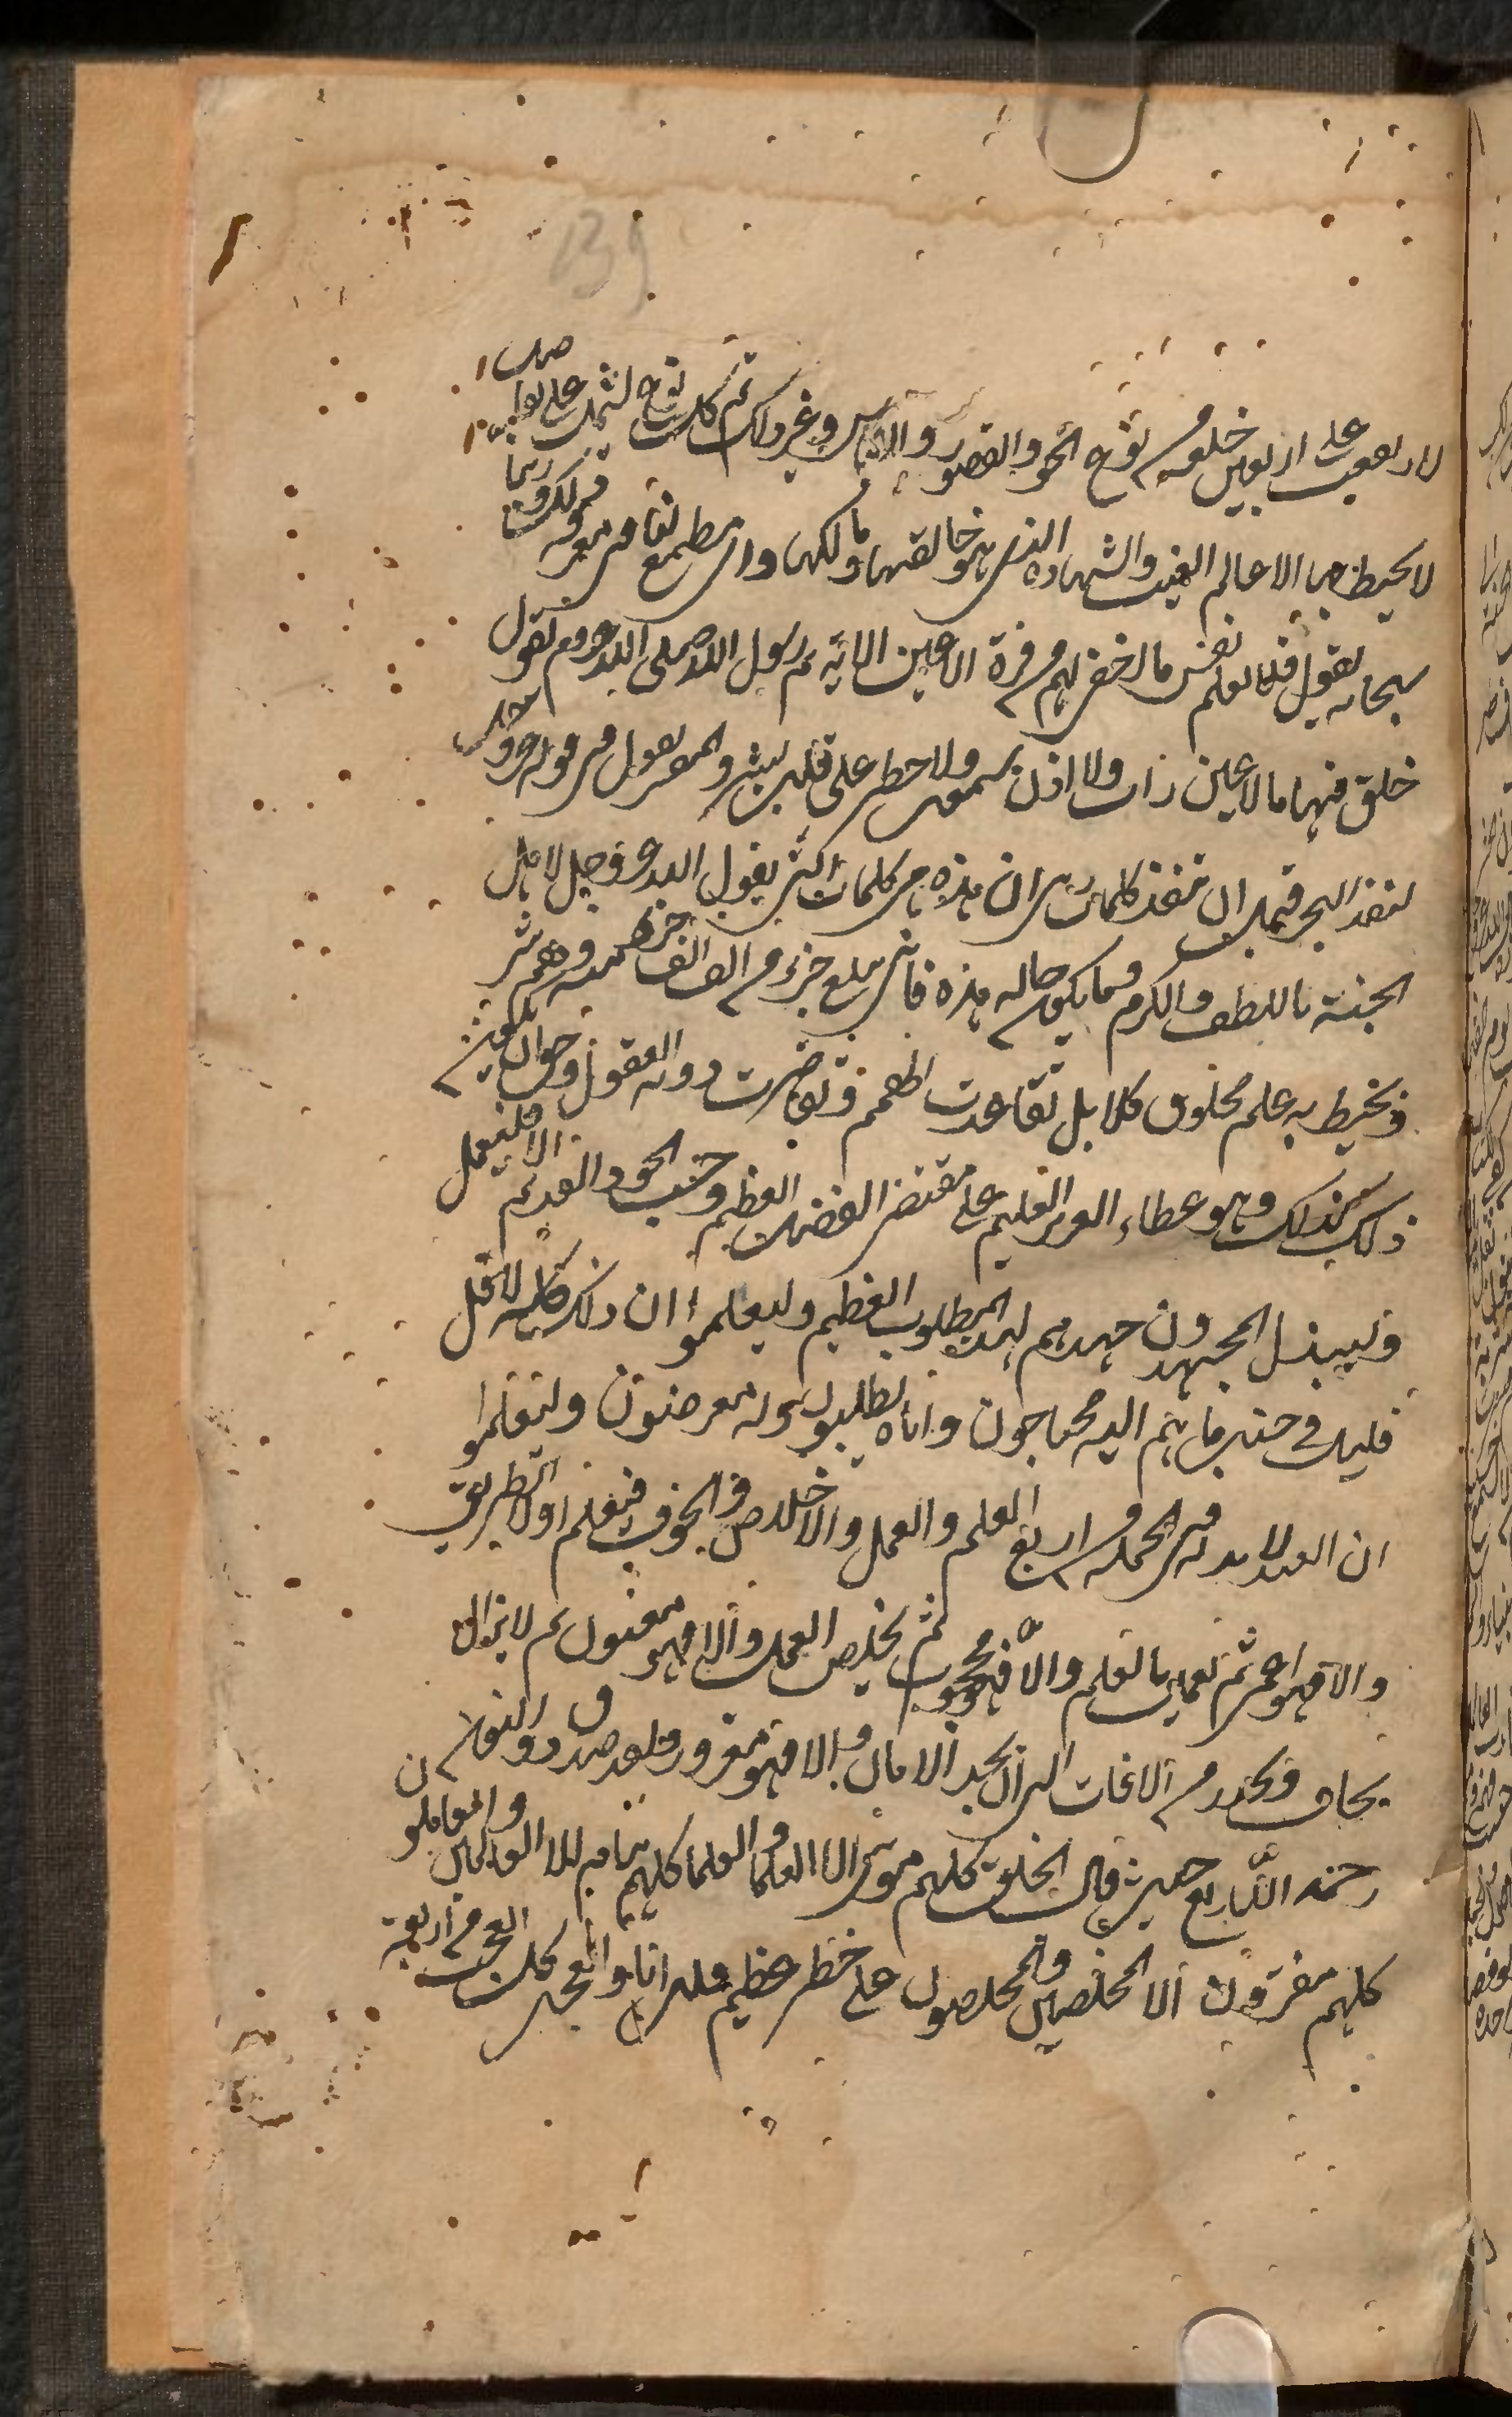 139
لارىعىں على اربعين خلعه من نوع الحور والقصور واللباس وغير ذلك ثم كل نوع يشتمل على تفاصيل
لا يحيط بها الا عالم الغيب والشهاده الذي هو خالقها ومالكها واى مطمع لنا فى معرفه ذلك وربنا
سبحانه يقول فلا تعلم نفس ما اخفى لهم من قرة الاعين الايه ثم رسول الله صلى الله عليه وسلم يقول
خلق فيها ما لا عين رات ولا اذن سمعت ولا خطر على قلب بشر والمفسرون يقولون فى قوله عز وجل
لنفد البحر قبل ان تنفد كلمات ربى ان هذه هى كلمات التى يقول الله عز وجل لاهل
الجنة باللطف والكرم وما يكون حاله هذه فانى يبلغ جزء من الف الف جزء منه وهم بشر
او يحيط به علم مخلوق كلا بل تقاعدت الهمم وتقاصرت دونه العقول وحق ان يكون
ذلك كذلك وهو عطاء العزيز العليم على مقتضى الفضل العظيم وحسب الجود القديم الا فليعمل
وليبذل المجتهدون جهدهم لهذا المطلوب العظيم وليعلموا ان ذلك كله لاقل
قليل في جنب ما هم اليه محتاجون واياه يطلبون وله معرضون وليعلموا
ان العبد لا بد له فى الجمله من اربع العلم والعمل والاخلاص والخوف فيعلم اولا الطريق
والا فهو اعمى ثم يعمل بالعلم والا فهو محجوب ثم يخلص العمل والا فهو مغبون ثم لا يزال
يخاف ويحذر من الافات الى ان يجد الامان والا فهو مغرور ولقد صدق ذو النون
رحمه الله تعالى حيث قال الخلق كلهم موتى الا العلما والعلما كلهم نيام الا العاملين والعاملون
كلهم مغترون الا المخلصين والمخلصون على خطر عظيم قلت انا والعجب كل العجب من اربعة